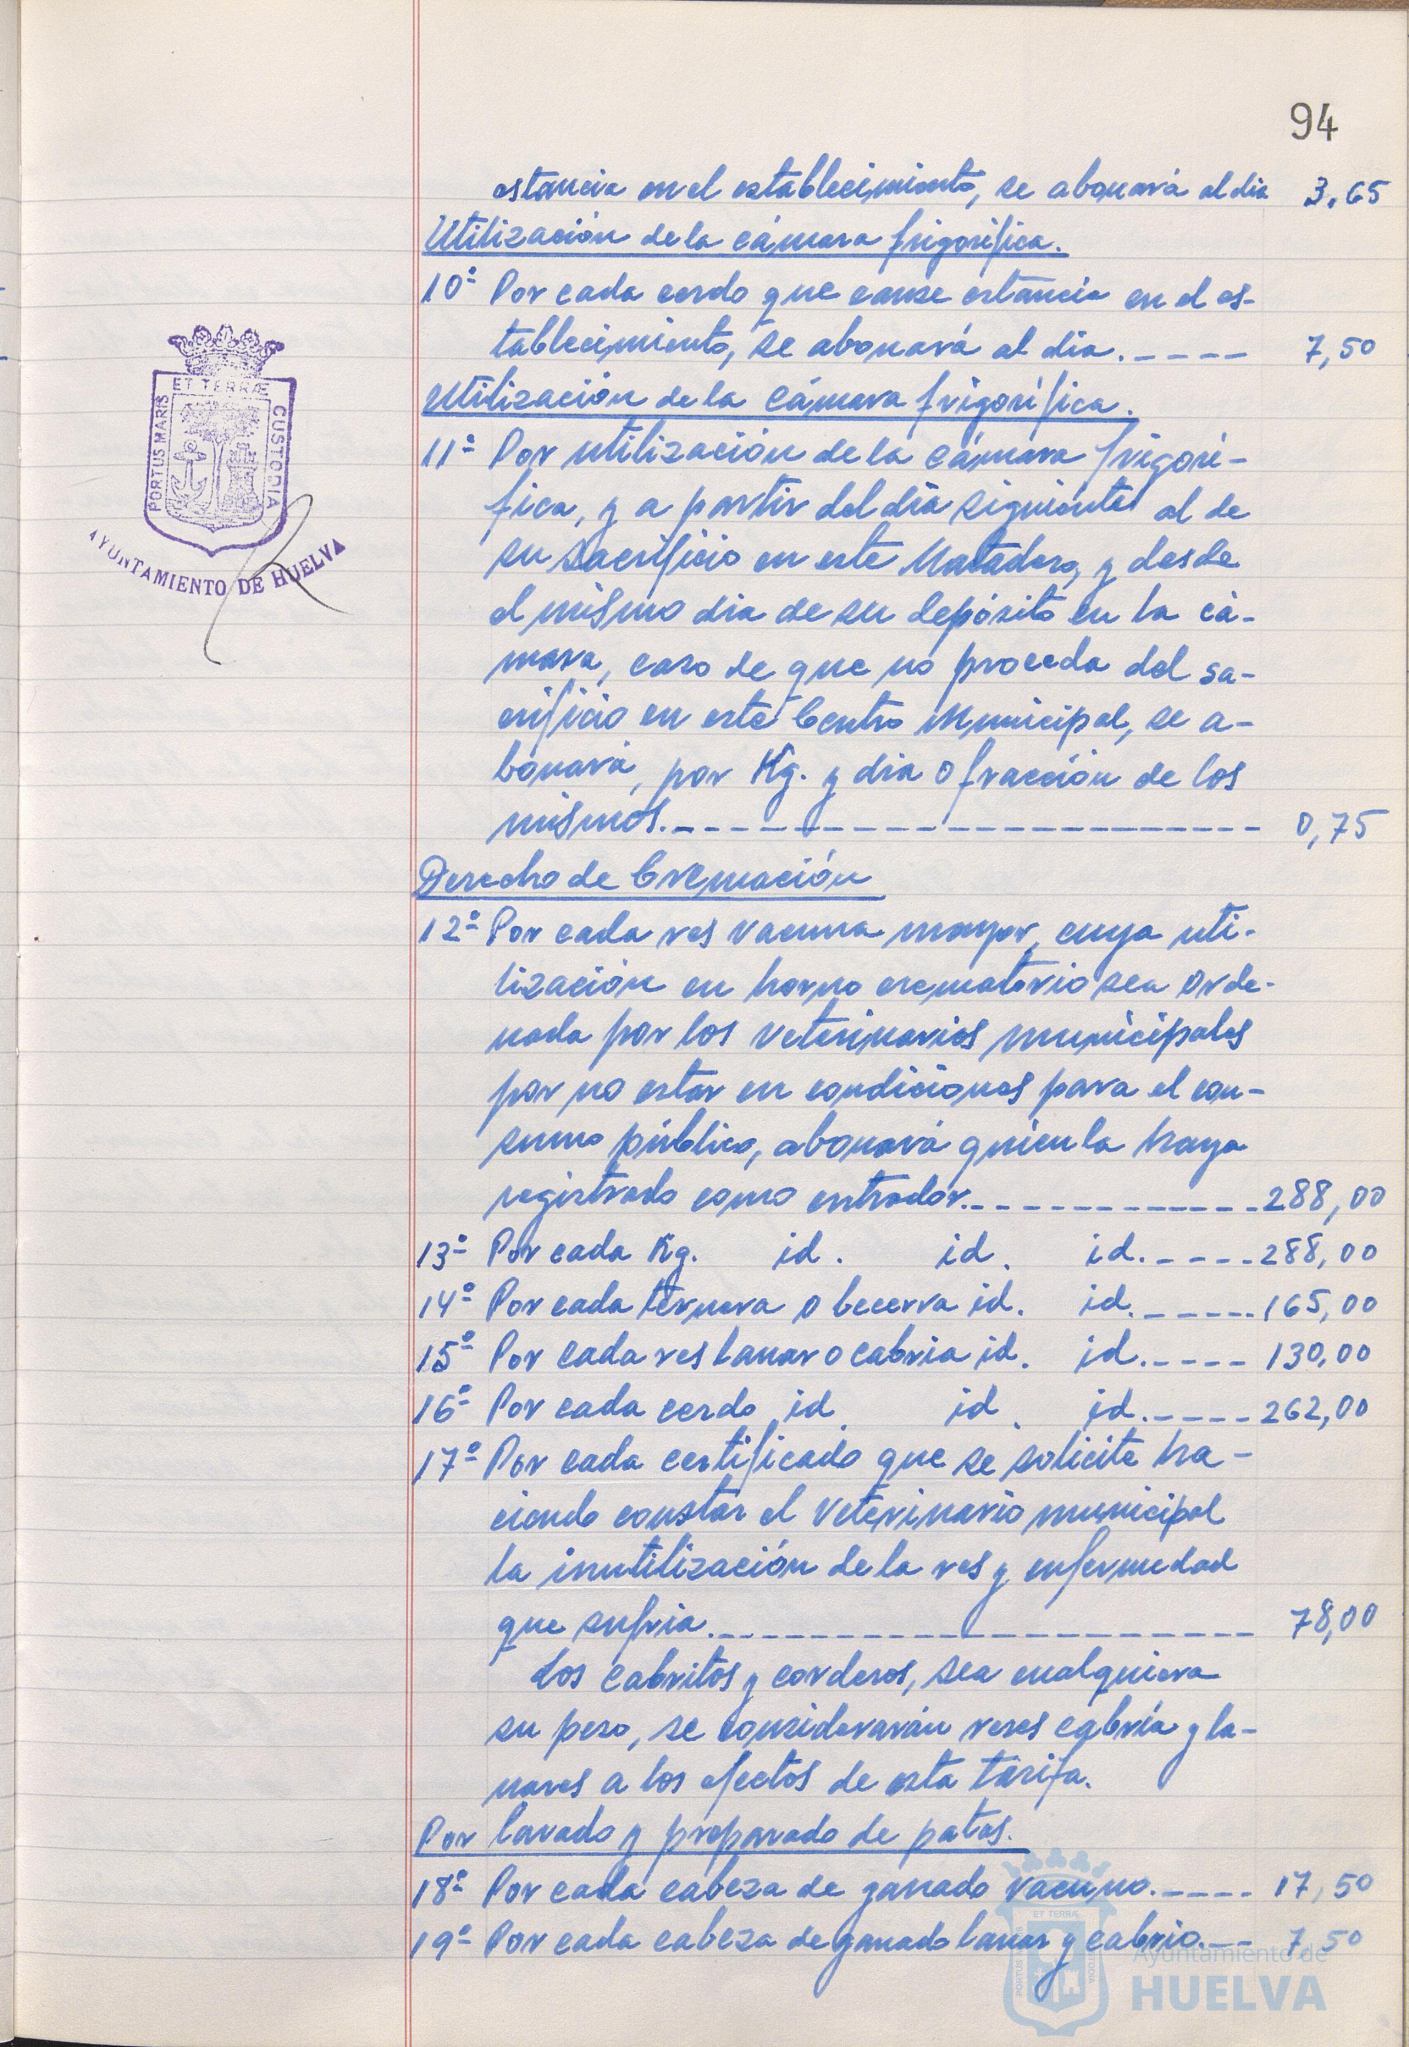 94
estancia en el establecimiento, se abonará al dia 3,65
Utilización de la cámara frigorífica.
10º Por cada cerdo que cause estancia en el es-
tablecimiento, se abonará al dia.---- 7,50
Utilización de la Cámara frigorífica.
11º Por utilización de la Cámara frigorí-
fica, y a partir del dia siguiente al de
su sacrificio en este Matadero, y desde
el mismo dia de su depósito en la cá-
mara, caso de que no proceda del sa-
crificio en este Centro Municipal, se a-
bonará, por Kg. y dia o fracción de los
mismos.-------------------- 0,75
Derecho de Cremación
12º Por cada res vacuna mayor, cuya uti-
lización en horno crematorio sea orde-
nada por los Veterinarios municipales
por no estar en condiciones para el con-
sumo público, abonará quien la haya
registrado como entrador.------------- 288,00
13º Por cada Kg. id. id. id.---- 288,00
14º Por cada ternera o becerra id. id.----- 165,00
15º Por cada res lanar o cabria id. id.---- 130,00
16º Por cada cerdo id. id. id.---- 262,00
17º Por cada certificado que se solicite ha-
ciendo constar el Veterinario municipal
la inutilización de la res y enfermedad
que sufria.-------------------- 78,00
Los cabritos y corderos, sea cualquiera
su peso, se considerarán reses cabría y la-
nares a los efectos de esta tarifa.
Por lavado y preparado de patas.
18º Por cada cabeza de ganado vacuno.---- 17,50
19º Por cada cabeza de ganado lanar y cabrio.-- 7,50
PORTUS MARIS
ET TERRÆ
CUSTODIA
AYUNTAMIENTO DE HUELVA
PORTUS MARIS
ET TERRÆ
CUSTODIA
Ayuntamiento de
HUELVA